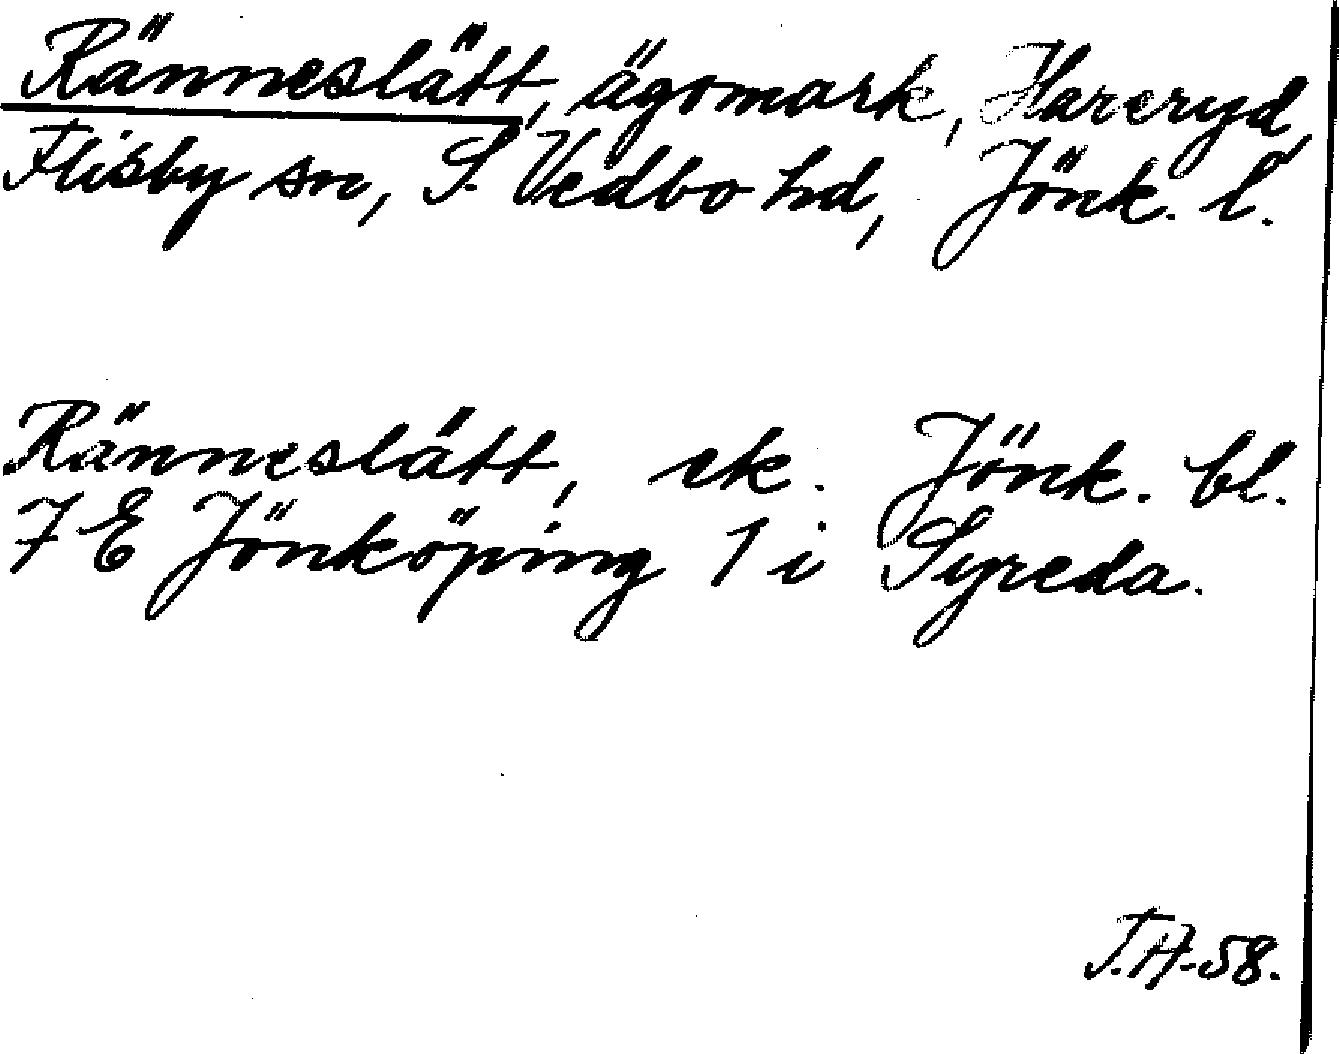 Ränneslätt, ägomark, Hareryd,
Flisby sn, S. Vedbo hd, Jönk. l.
Ränneslätt, ek. Jönk. bl.
7 E Jönköping 1 i Syreda.
J.A-58.